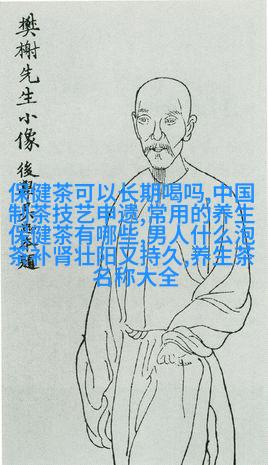 樊榭先生小像
後
題
保健茶可以长期喝吗,中国
制茶技艺申遗,常用的养生
保健茶有哪些,男人什么泡
茶补肾壮阳又持久,养生茶
名称大全